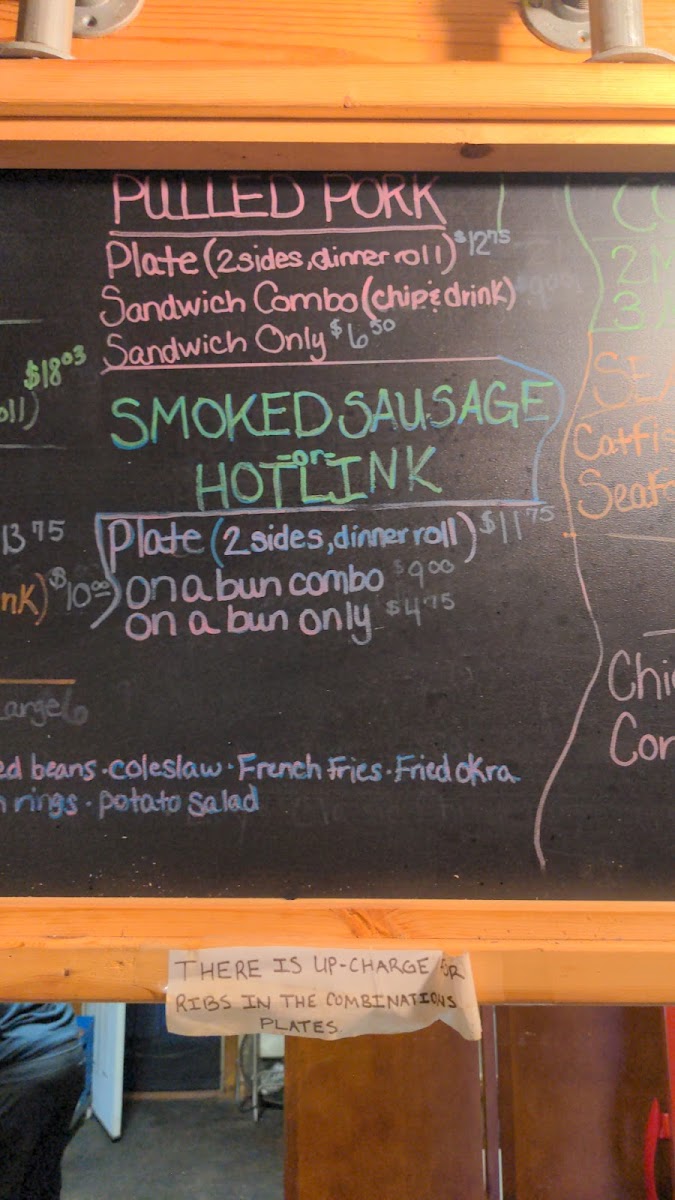 PULLED PORK
Plate (2 sides, dinner roll) $12.75
Sandwich Combo (chip & drink) $9.00
Sandwich Only $6.50
$18.03
oll)
SMOKED SAUSAGE
-or-
HOTLINK
13.75
nk) $10.00
Plate (2 sides, dinner roll) $11.75
on a bun combo $9.00
on a bun only $4.75
2 M
3
Catfis
Seafo
Chi
Cor
arge
ed beans · coleslaw · French Fries · Fried okra
n rings · potato salad
THERE IS UP-CHARGE OR
RIBS IN THE COMBINATIONS
PLATES.